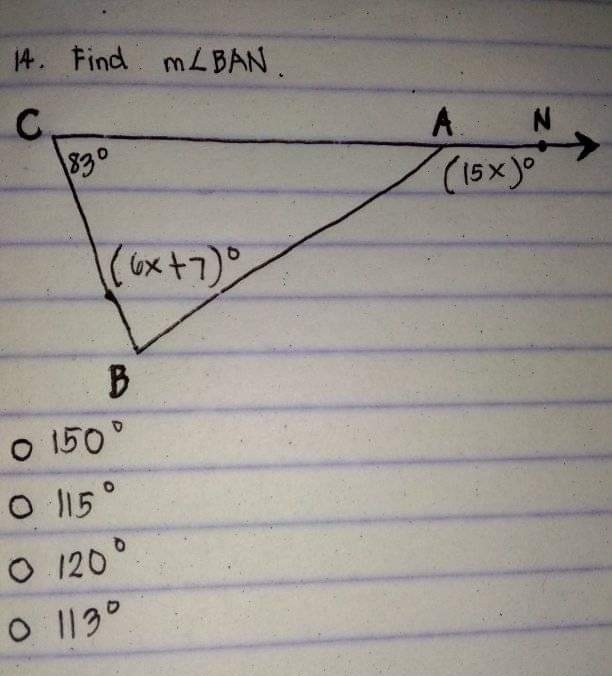 14. Find m∠BAN.
C A N
83°
(15x)°
(6x+7)°
B
150°
115°
120°
113°